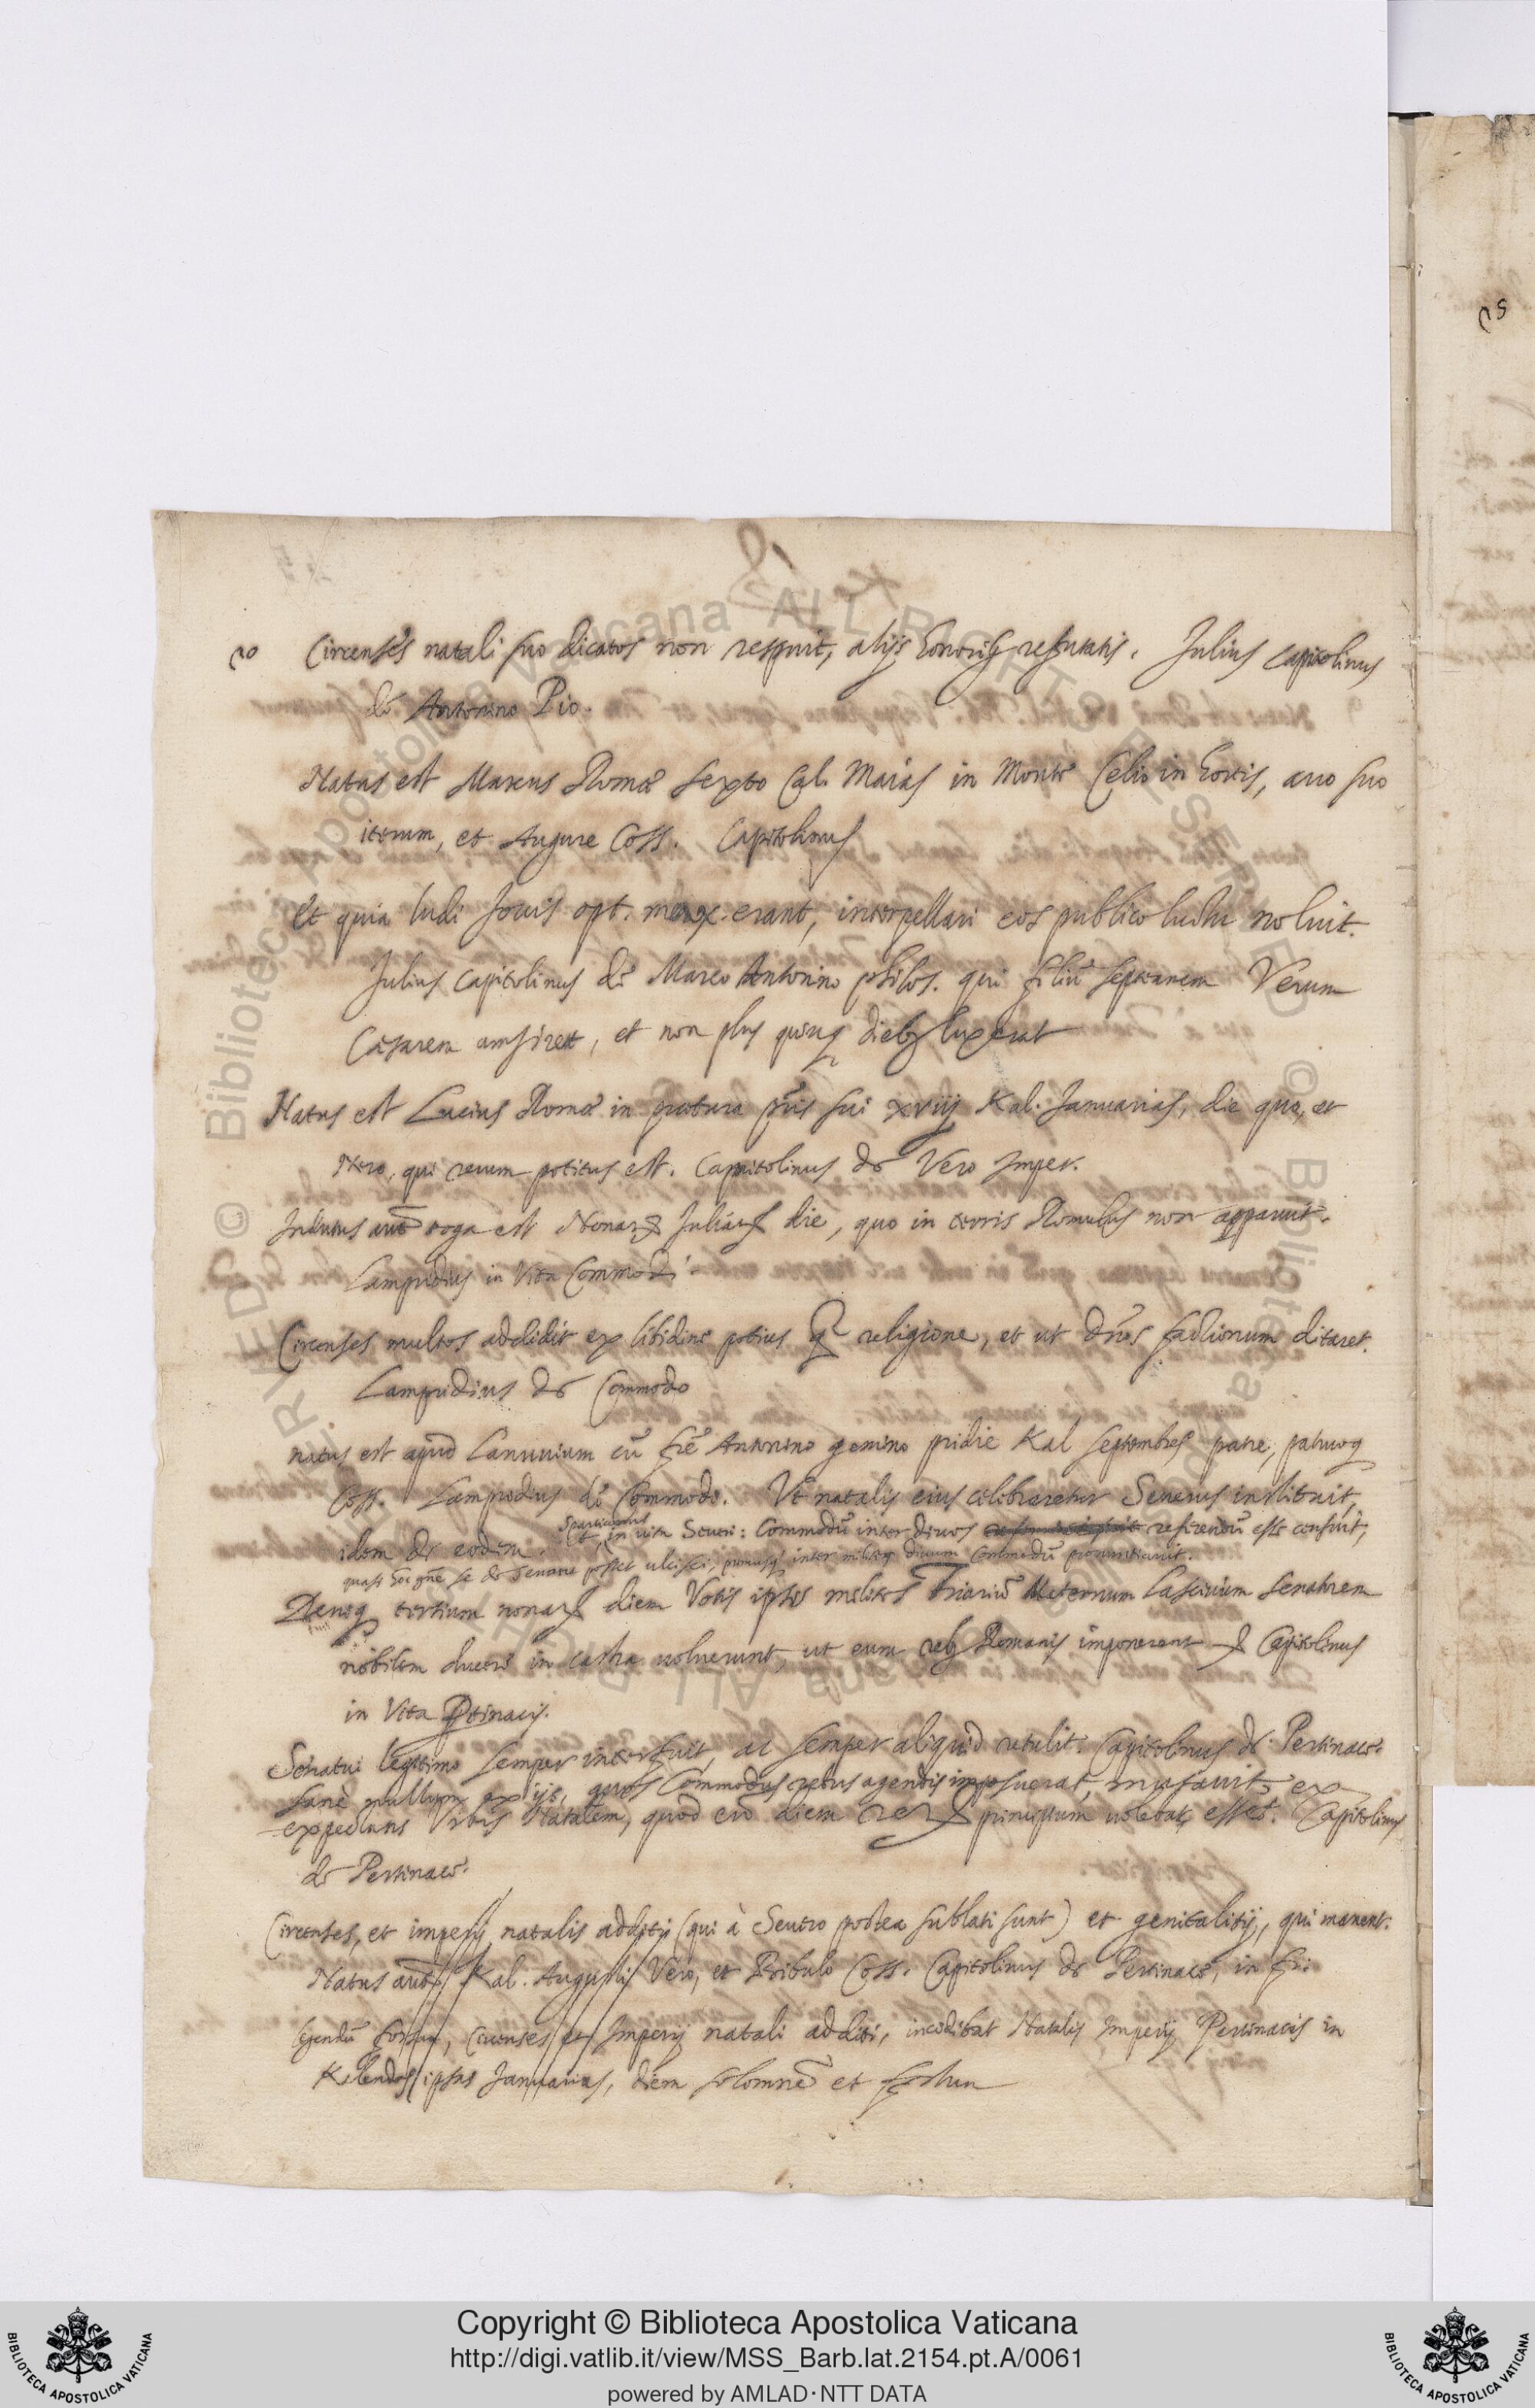 Circenses natali suo dicatos non respuit, alijs honorib; refutatis. Julius Capitolinus
de Antonino Pio.
Natus est Marcus Romae sexto Cal. Maias in Monte Celio in hortis, auo suo
iterum, et Augure Coss. Capitolinus
Et quia ludi Jouis opt. max. erant, interpellari eos publico luctu noluit.
Julius Capitolinus de Marco Antonino philos. qui filiũ septennem Verum
Caesarem amsirett, et non plus quinq; dieb; luxerat
Natus est Lucius Romae in pretura pr̃is sui xviij Kal. Januarias, die quo, et
Nero, qui rerum potitus est. Capitolinus de Vero Imper.
Indutus aut̃ toga est Nonar; Juliar; die, quo in terris Romulus non apparuit.
Lampridius in Vita Commodi
Circenses multos addidit ex libidine potius q̃ religione, et ut dños factionum ditaret.
Lampridius de Commodo
natus est apud Lanuuium cũ fr̃e Antonino gemino pridie Kal Septembres patre, patruoq;
Coss. Lampridius de Commodo. Vt natalis eius celebraretur Seuerus instituit,
idem de eodem. Spartianus Et in vita Seueri: Commodũ inter diuos referendũ esse censuit,
quasi hoc gñe se de Senatu posset ulcisci, primusq; inter milites diuum Commodũ pronuntiauit.
Deniq; tertium nonar; diem Votis ipsis milites Triariũ Maternum Lasciuium Senatorem
nobilem ducere in castra voluerunt, ut eum reb; Romanis imponerent Capitolinus
in Vita Ptinacis.
Senatui legitimo semper interfuit, ac semper aliquid retulit. Capitolinus de Pertinace.
Sanè nullum ex ijs, quos Commodus rebus agendis imposuerat, mutauit, ex
expectans Vrbis Natalem, quod eũ diem rer; principium uolebat esset. Capitolinus
de Pertinace.
Circenses, et imperij natalis additi (qui à Seuero postea sublati sunt) et genitalitij, qui manent.
Natus aut̃ Kal. Augusti Vero, et Bibulo Coss. Capitolinus de Pertinace, in fi:
legendũ Circenses et Imperij natali additi, incidebat Natalis Imperij Pertinacis in
Kalendas ipsas Januarias, diem solemnẽ et festum
Copyright © Biblioteca Apostolica Vaticana
http://digi.vatlib.it/view/MSS_Barb.lat.2154.pt.A/0061
powered by AMLAD·NTT DATA